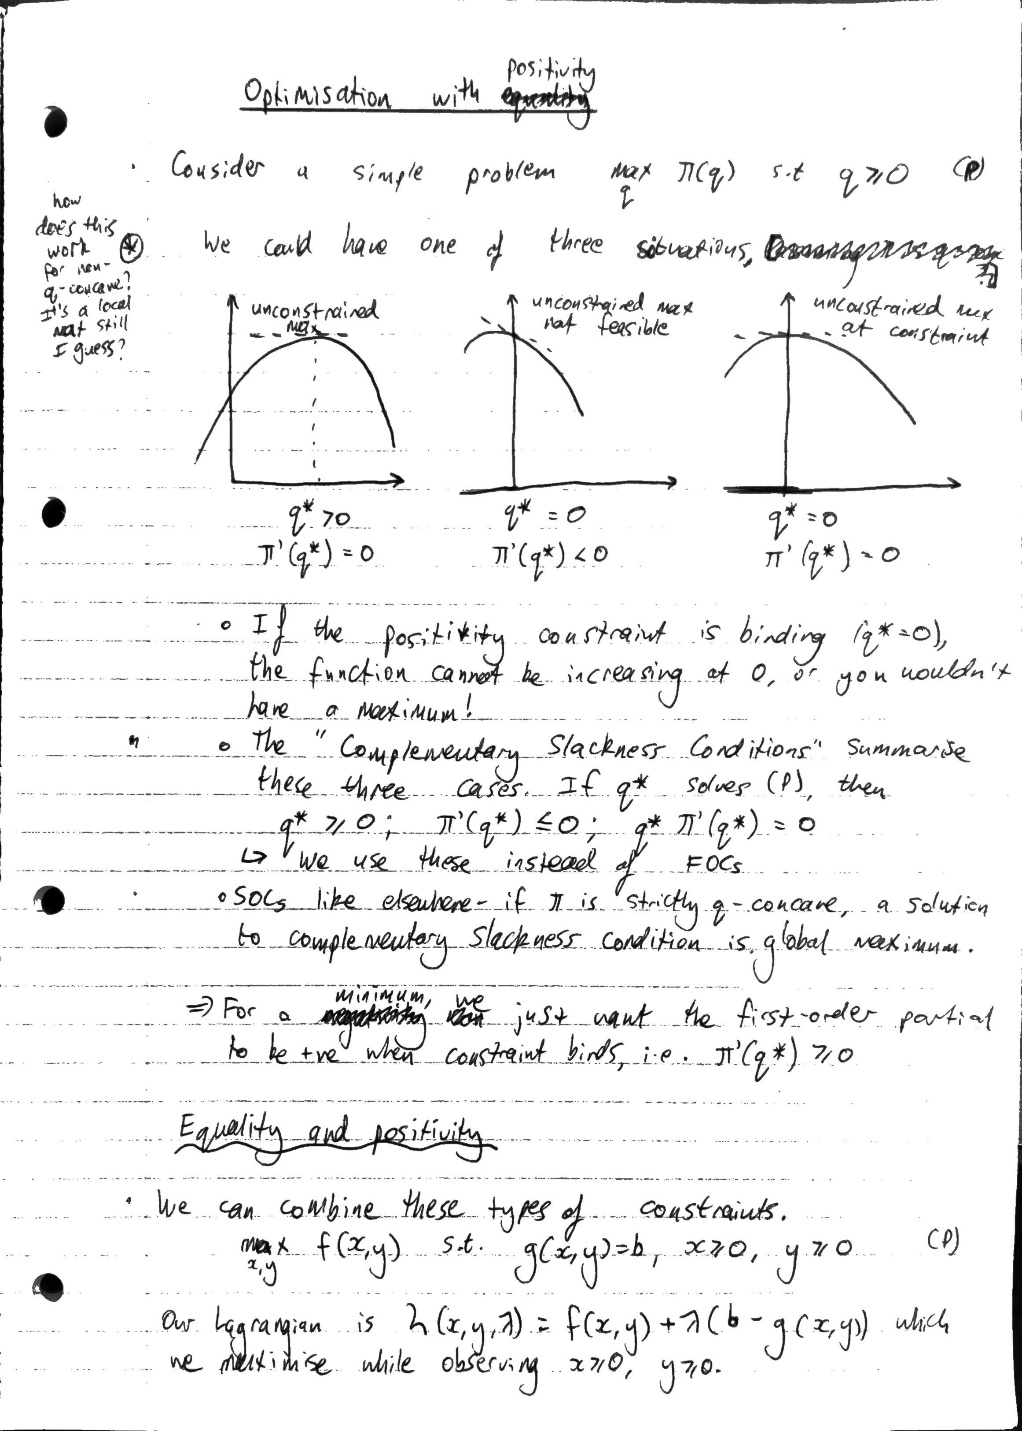 Optimisation with positivity
Consider a simple problem max π(q) s.t q ≥ 0 (P)
q
how
does this
work
for non-
q-concave?
It's a local
max still
I guess?
⊛ We could have one of three situations,
unconstrained
max
unconstrained max
not feasible
unconstrained max
at constraint
q* > 0
π'(q*) = 0
q* = 0
π'(q*) < 0
q* = 0
π'(q*) = 0
∘ If the positivity constraint is binding (q* = 0),
the function cannot be increasing at 0, or you wouldn't
have a maximum!
∘ The "Complementary Slackness Conditions" summarise
these three cases. If q* solves (P), then
q* ≥ 0; π'(q*) ≤ 0; q* π'(q*) = 0
↳ We use these instead of FOCs
∘ SOCs like elsewhere - if π is strictly q-concave, a solution
to complementary slackness condition is global maximum.
⇒ For a minimum, we just want the first-order partial
to be +ve when constraint binds, i.e. π'(q*) ≥ 0
Equality and positivity
We can combine these types of constraints.
max f(x,y) s.t. g(x,y) = b, x ≥ 0, y ≥ 0 (P)
x,y
Our Lagrangian is L(x,y,λ) = f(x,y) + λ(b - g(x,y)) which
we maximise while observing x ≥ 0, y ≥ 0.